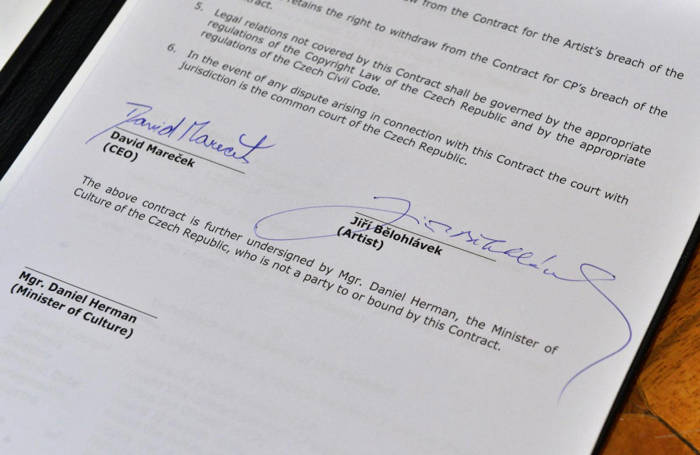 from the Contract for the Artist's breach of the
tract.
retains the right to withdraw from the Contract for CP's breach of the
5. Legal relations not covered by this Contract shall be governed by the appropriate
regulations of the Copyright Law of the Czech Republic and by the appropriate
regulations of the Czech Civil Code.
6. In the event of any dispute arising in connection with this Contract the court with
jurisdiction is the common court of the Czech Republic.
David Mareček
David Mareček
(CEO)
Jiří Bělohlávek
Jiří Bělohlávek
(Artist)
The above contract is further undersigned by Mgr. Daniel Herman, the Minister of
Culture of the Czech Republic, who is not a party to or bound by this Contract.
Mgr. Daniel Herman
(Minister of Culture)